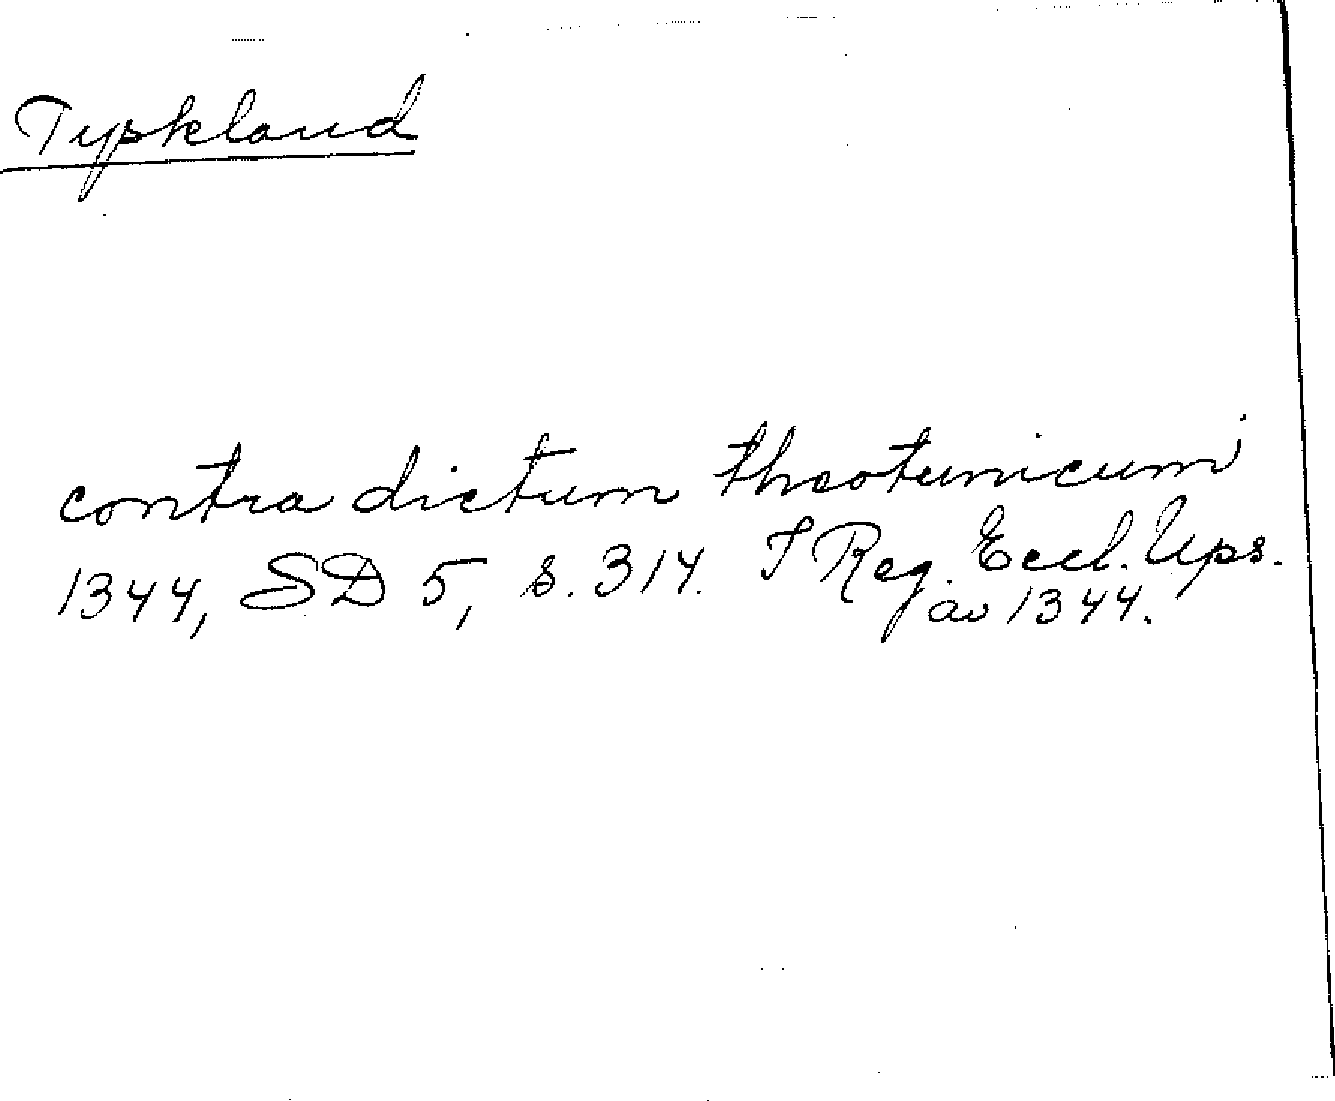 Tyskland
contra dictum theotunicum
1344, SD 5, s. 314. I Reg. Eccl. Ups.
av 1344.